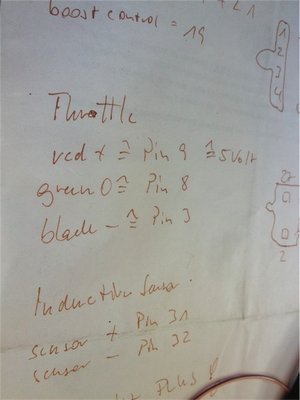 boost control = 19
Throttle
red + ≙ Pin 9 ≙ 5Volt
green 0 ≙ Pin 8
black - ≙ Pin 3
Inductive Sensor:
sensor + Pin 31
sensor - Pin 32
1
2
3
4
2